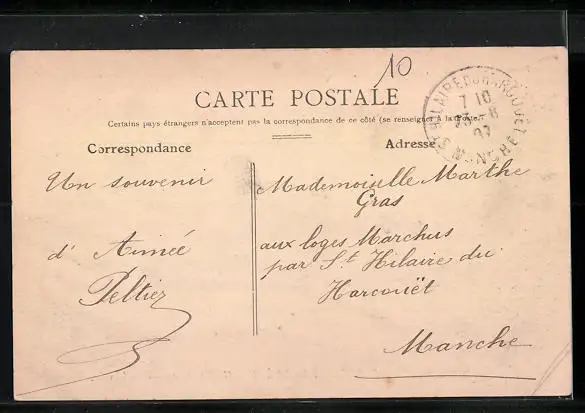 10
CARTE POSTALE
Certains pays étrangers n'acceptent pas la correspondance de ce côté (se renseigner à la Poste.)
Correspondance
Adresse
ST HILAIRE DU HARCOUET
7 10
23 - 8
07
MANCHE
Un souvenir
d'Aimée
Peltier
Mademoiselle Marthe
Gras
aux loges Marchis
par St Hilaire du
Harcouët
Manche